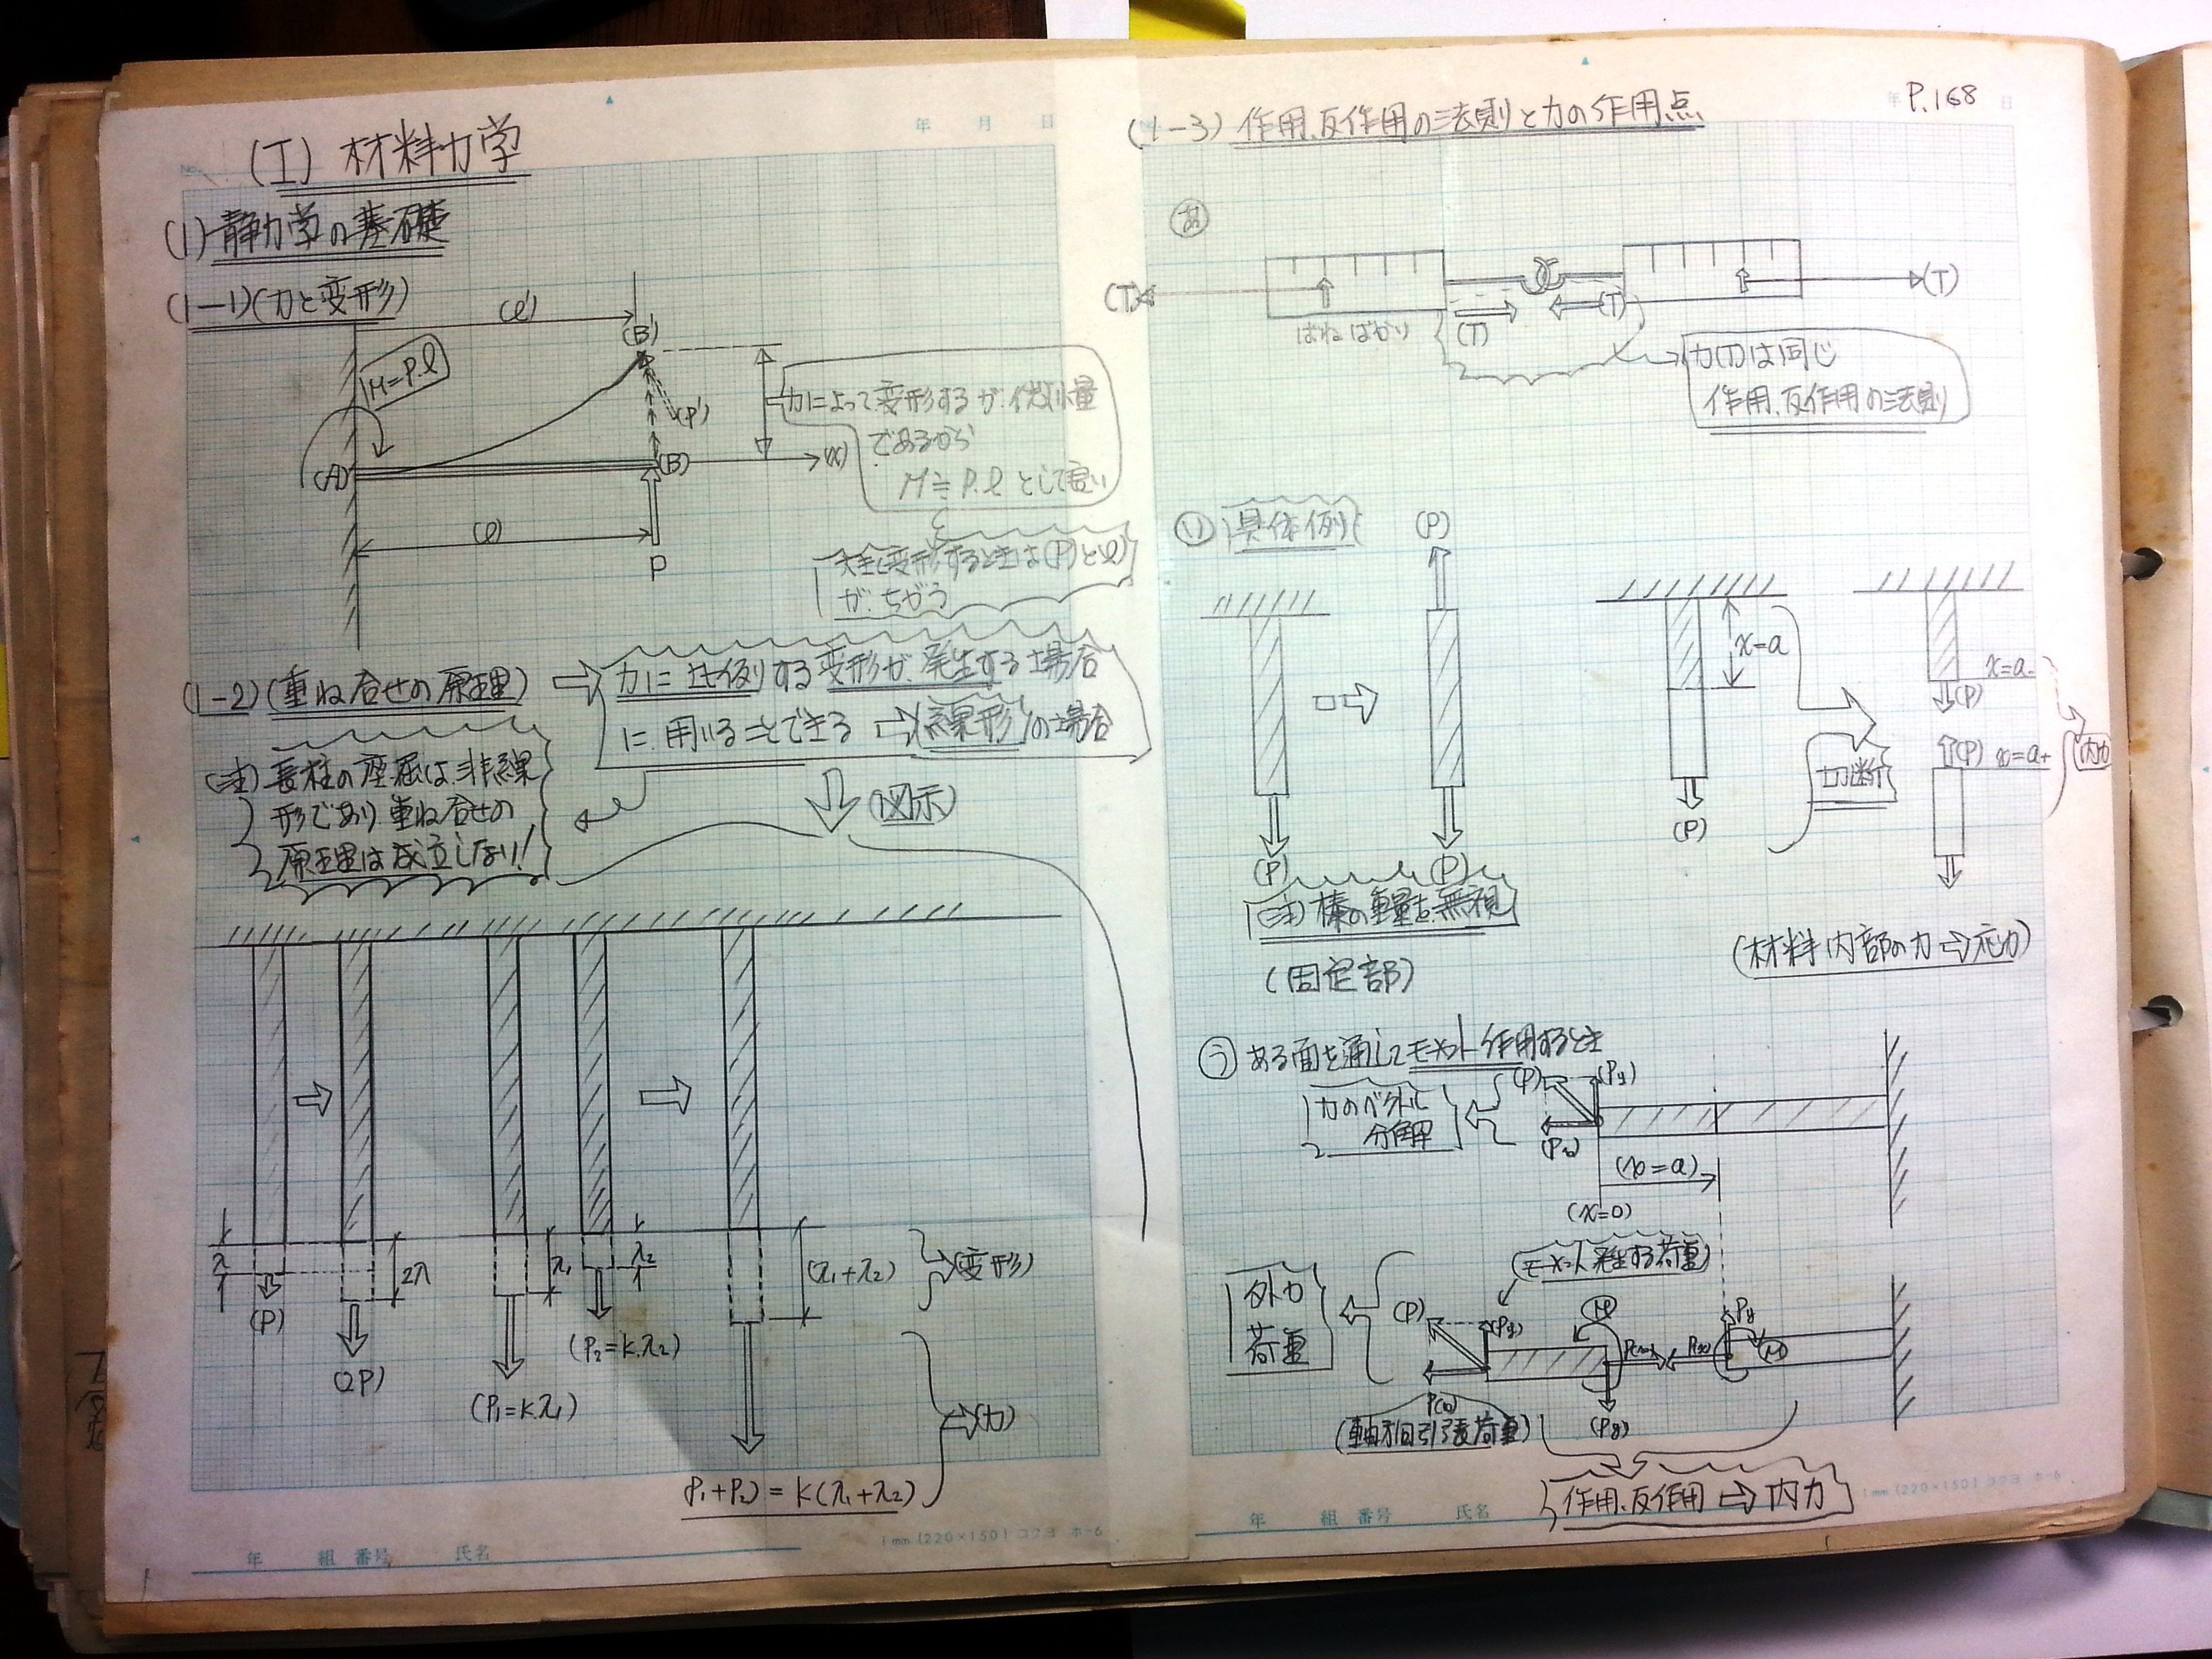 (I) 材料力学
(1) 静力学の基礎
(1-1)(力と変形)
(ℓ')
(B')
M=P.ℓ
(P')
(A)
(B)
(x)
(ℓ)
P
力によって変形するが、微小量
であるから
M≒P.ℓ として良い
大きく変形するときは(P)とℓ)
が、ちがう
(1-2)(重ね合せの原理)
力に比例する変形が発生する場合
に用いることできる ⇨ 線形の場合
(注) 長柱の座屈は非線
形であり、重ね合せの
原理は成立しない!
(図示)
λ
(P)
2λ
(2P)
λ1
(P1=K.λ1)
λ2
(P2=K.λ2)
(λ1+λ2)
(変形)
(力)
(P1+P2)=K(λ1+λ2)
年 月 日
No.
年 組 番号 氏名
1mm(220×150)コクヨ ホ-6
年 P.168 日
(1-3) 作用、反作用の法則と力の作用点
あ
(T)
(T)
はねばかり
(T)
(T)
力(T)は同じ
作用、反作用の法則
い 具体例
(P)
(P)
(P)
x=a
(P)
切断
x=a-
(P)
(P)
x=a+
内力
(注) 棒の重量を無視
(固定部)
(材料内部の力⇨応力)
う ある面を通してモーメント作用するとき
力のベクトル
分解
(P)
(Py)
(Px)
(x=a)
(x=0)
モーメント発生する荷重
外力
荷重
(P)
(Py)
P(x)
(軸方向引張荷重)
M
P(x)
P(x)
(Py)
Py
M
作用、反作用 ⇨ 内力
年 組 番号 氏名
1mm(220×150)コクヨ ホ-6